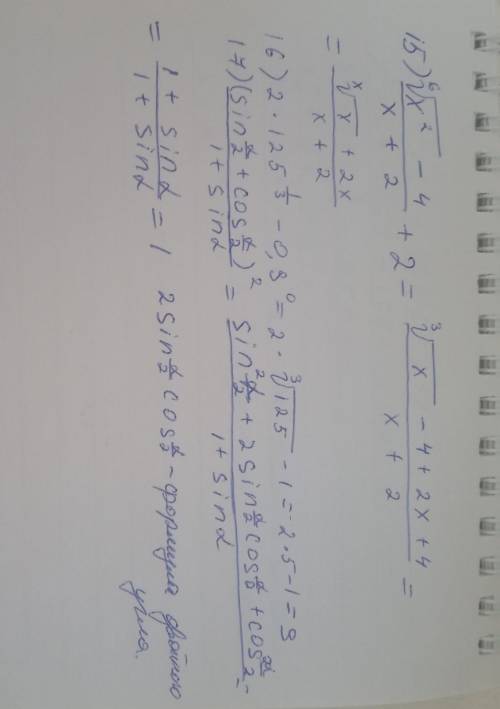 15) \frac{\sqrt[6]{x^2} - 4}{x + 2} + 2 = \frac{\sqrt[3]{x} - 4 + 2x + 4}{x + 2} =
= \frac{\sqrt[x]{x} + 2x}{x + 2}
16) 2 · 125^{\frac{1}{3}} - 0,9^0 = 2 · \sqrt[3]{125} - 1 = 2·5-1 = 9
17) \frac{(sin\frac{α}{2} + cos\frac{α}{2})^2}{1 + sinα} = \frac{sin^2\frac{α}{2} + 2sin\frac{α}{2}cos\frac{α}{2} + cos^2\frac{α}{2}}{1 + sinα} =
= \frac{1 + sinα}{1 + sinα} = 1 2sin\frac{α}{2}cos\frac{α}{2} - формула двойного
угла.